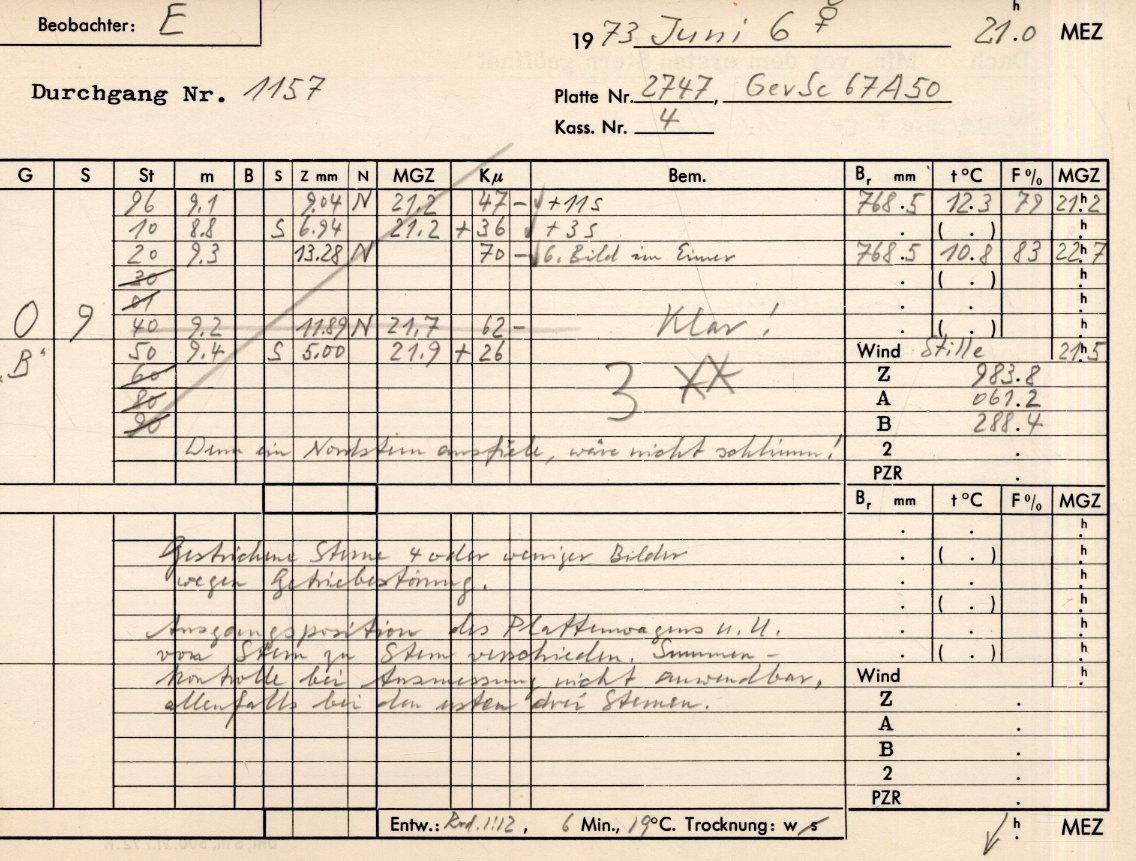 Beobachter: E
1973 Juni 6 ☿ 21.0 h MEZ
Durchgang Nr. 1157
Platte Nr. 2747, GevSc 67A50
Kass. Nr. 4
G S St m B S Z mm N MGZ Kμ Bem. Br mm t °C F % MGZ
96 9.1 9.04 N 21.2 47 - + 11s 768.5 12.3 79 21h.2
10 8.8 S 6.94 21.2 + 36 + 3s . ( . ) h.
20 9.3 13.28 N 70 - 6. Bild im Eimer 768.5 10.8 83 22h.7
30 . ( . ) h.
01 . . h.
0 9 40 9.2 11.89 N 21.7 62 - Klar! . ( . ) h.
"B" 50 9.4 S 5.00 21.9 + 26 Wind Stille 21h.5
60 3 ** Z 983.8
80 A 061.2
90 B 288.4
Denn ein Nordstern ausfiele, wäre nicht schlimm! 2 .
PZR .
Br mm t °C F % MGZ
. . h.
Gestrichene Sterne 4 oder weniger Bilder . ( . ) h.
wegen Getriebestörung. . . h.
. ( . ) h.
Ausgangsposition des Plattenwagens u. U. . . h.
von Stern zu Stern verschieden. Summen- . ( . ) h.
kontrolle bei Ausmessung nicht anwendbar, Wind h.
allenfalls bei den ersten drei Sternen. Z .
A .
B .
2 .
PZR .
Entw.: Rod. 1:12, 6 Min., 19°C. Trocknung: w s h. MEZ